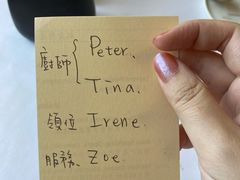 廚師 { Peter、
Tina.
領位 Irene.
服務、Zoe.